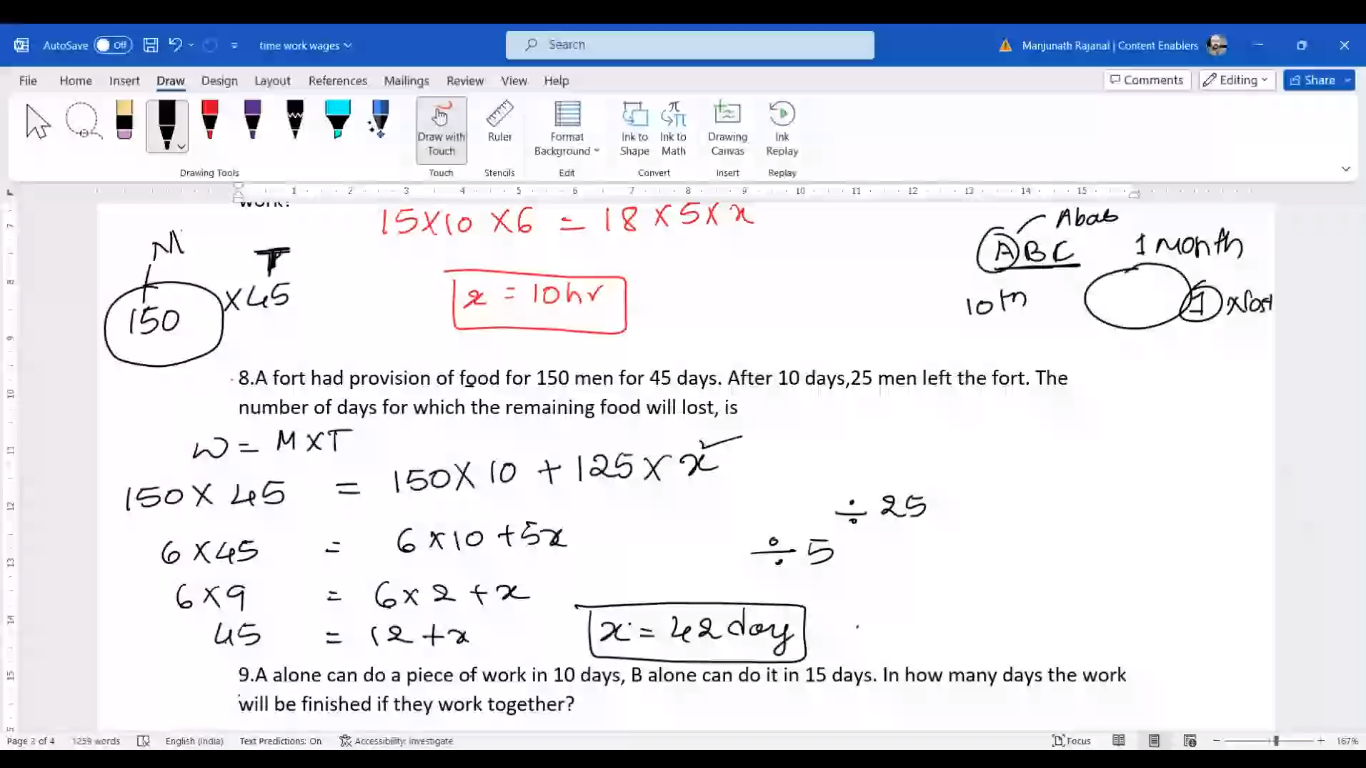 AutoSave Off time work wages Search Manjunath Rajanal | Content Enablers
File Home Insert Draw Design Layout References Mailings Review View Help Comments Editing Share
Draw with Touch Ruler Format Background Ink to Shape Ink to Math Drawing Canvas Ink Replay
Drawing Tools Touch Stencils Edit Convert Insert Replay
1 2 3 4 5 6 7 8 9 10 11 12 13 14 15
work?
15 X 10 X 6 = 18 X 5 X x
M
T
150 X 45
x = 10 hr
ABC
1 month
10th
1
8.A fort had provision of food for 150 men for 45 days. After 10 days,25 men left the fort. The
number of days for which the remaining food will lost, is
W = M X T
150 X 45 = 150 X 10 + 125 X x
÷ 25
6 X 45 = 6 X 10 + 5x
÷ 5
6 X 9 = 6 X 2 + x
45 = 12 + x
x = 42 day
9.A alone can do a piece of work in 10 days, B alone can do it in 15 days. In how many days the work
will be finished if they work together?
Page 3 of 4 1259 words English (India) Text Predictions: On Accessibility: Investigate Focus 167%